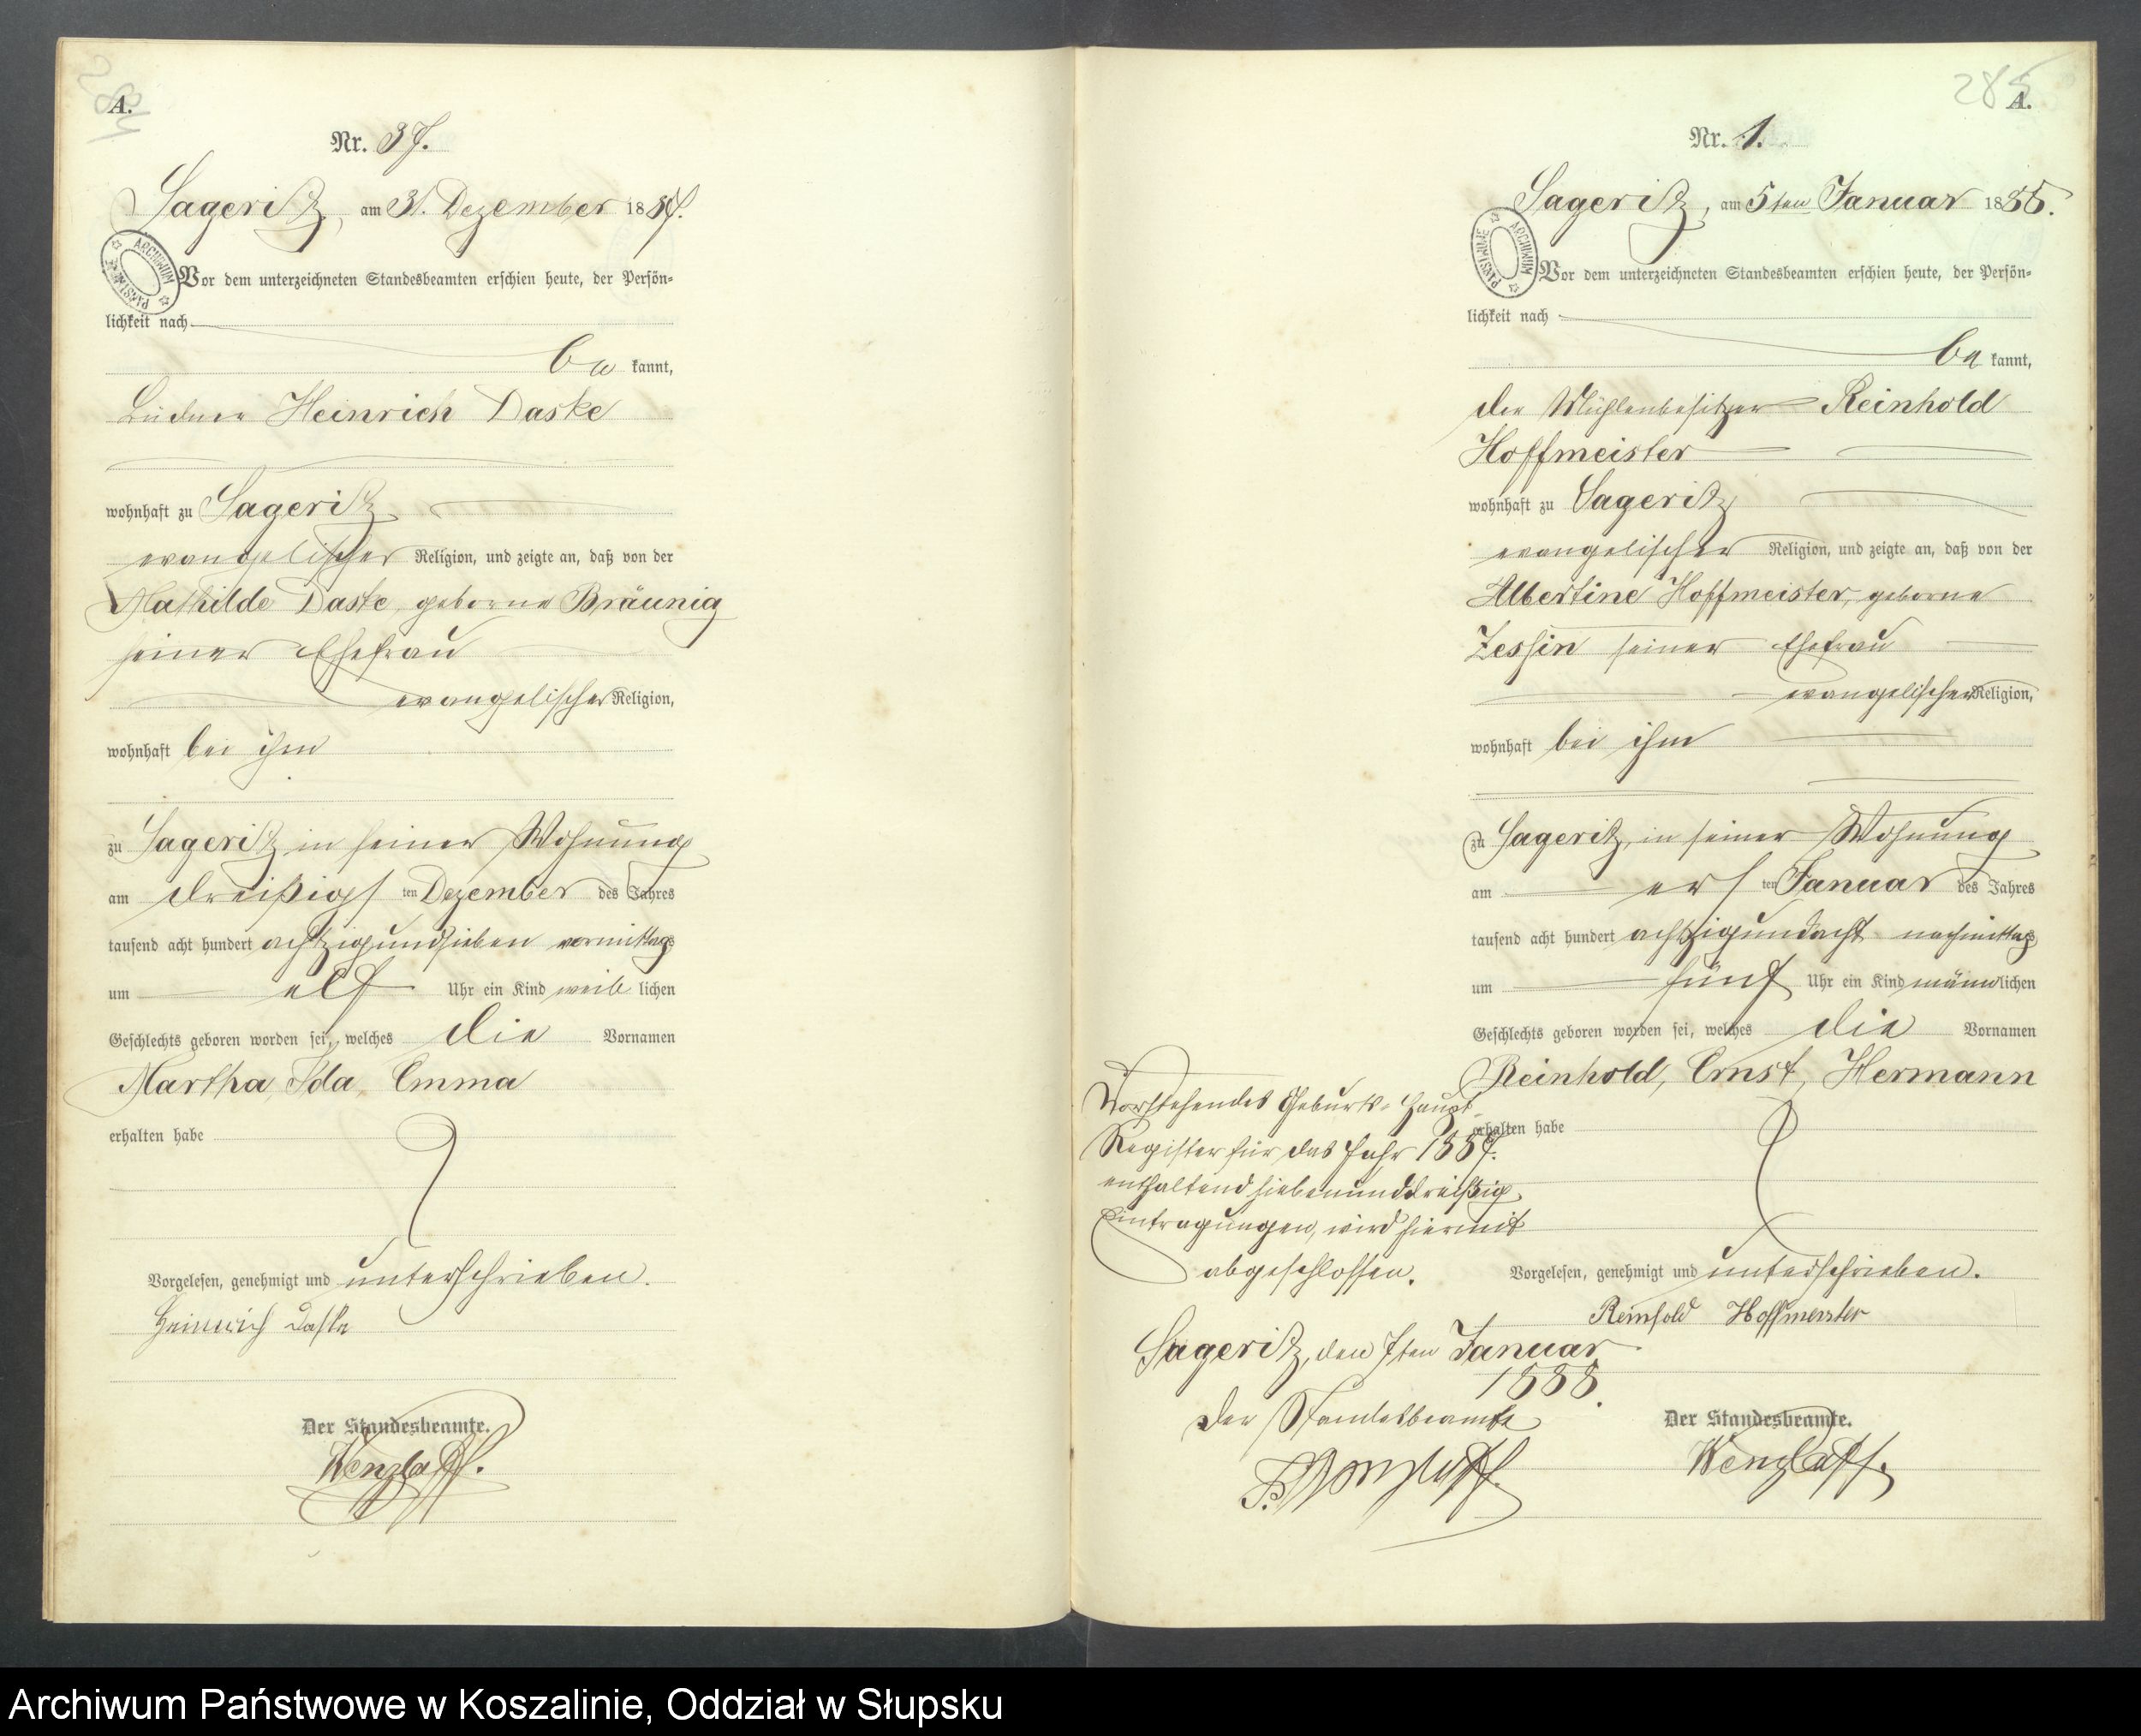 284
A.
Nr. 37.
Sageritz, am 31. Dezember 1887.
ARCHIWUM PAŃSTWOWE
Vor dem unterzeichneten Standesbeamten erschien heute, der Persön-
lichkeit nach
be kannt,
Büdner Heinrich Daske
wohnhaft zu Sageritz
evangelischer Religion, und zeigte an, daß von der
Mathilde Daske, geborne Bräunig
seiner Ehefrau
evangelischer Religion,
wohnhaft bei ihm
zu Sageritz in seiner Wohnung
am dreißigs ten Dezember des Jahres
tausend acht hundert achtzigundsieben vormittags
um elf Uhr ein Kind weib lichen
Geschlechts geboren worden sei, welches die Vornamen
Martha, Ida, Emma
erhalten habe
Vorgelesen, genehmigt und unterschrieben.
Heinrich Daske
Der Standesbeamte.
Wenzlaff.
285
A.
Nr. 1.
Sageritz, am 5ten Januar 1888.
ARCHIWUM PAŃSTWOWE
Vor dem unterzeichneten Standesbeamten erschien heute, der Persön-
lichkeit nach
be kannt,
der Mühlenbesitzer Reinhold
Hoffmeister
wohnhaft zu Sageritz
evangelischer Religion, und zeigte an, daß von der
Albertine Hoffmeister, geborne
Zessin seiner Ehefrau
evangelischer Religion,
wohnhaft bei ihm
zu Sageritz, in seiner Wohnung
am ers ten Januar des Jahres
tausend acht hundert achtzigundacht nachmittags
um fünf Uhr ein Kind männlichen
Geschlechts geboren worden sei, welches die Vornamen
Reinhold, Ernst, Hermann
erhalten habe
Vorgelesen, genehmigt und unterschrieben.
Reinhold Hoffmeister
Der Standesbeamte.
Wenzlaff.
Vorstehendes Geburts-Haupt-
Register für das Jahr 1887.
enthaltend siebenunddreißig
Eintragungen, wird hiermit
abgeschlossen.
Sageritz, den 7ten Januar
1888.
Der Standesbeamte
Wenzlaff.
Archiwum Państwowe w Koszalinie, Oddział w Słupsku